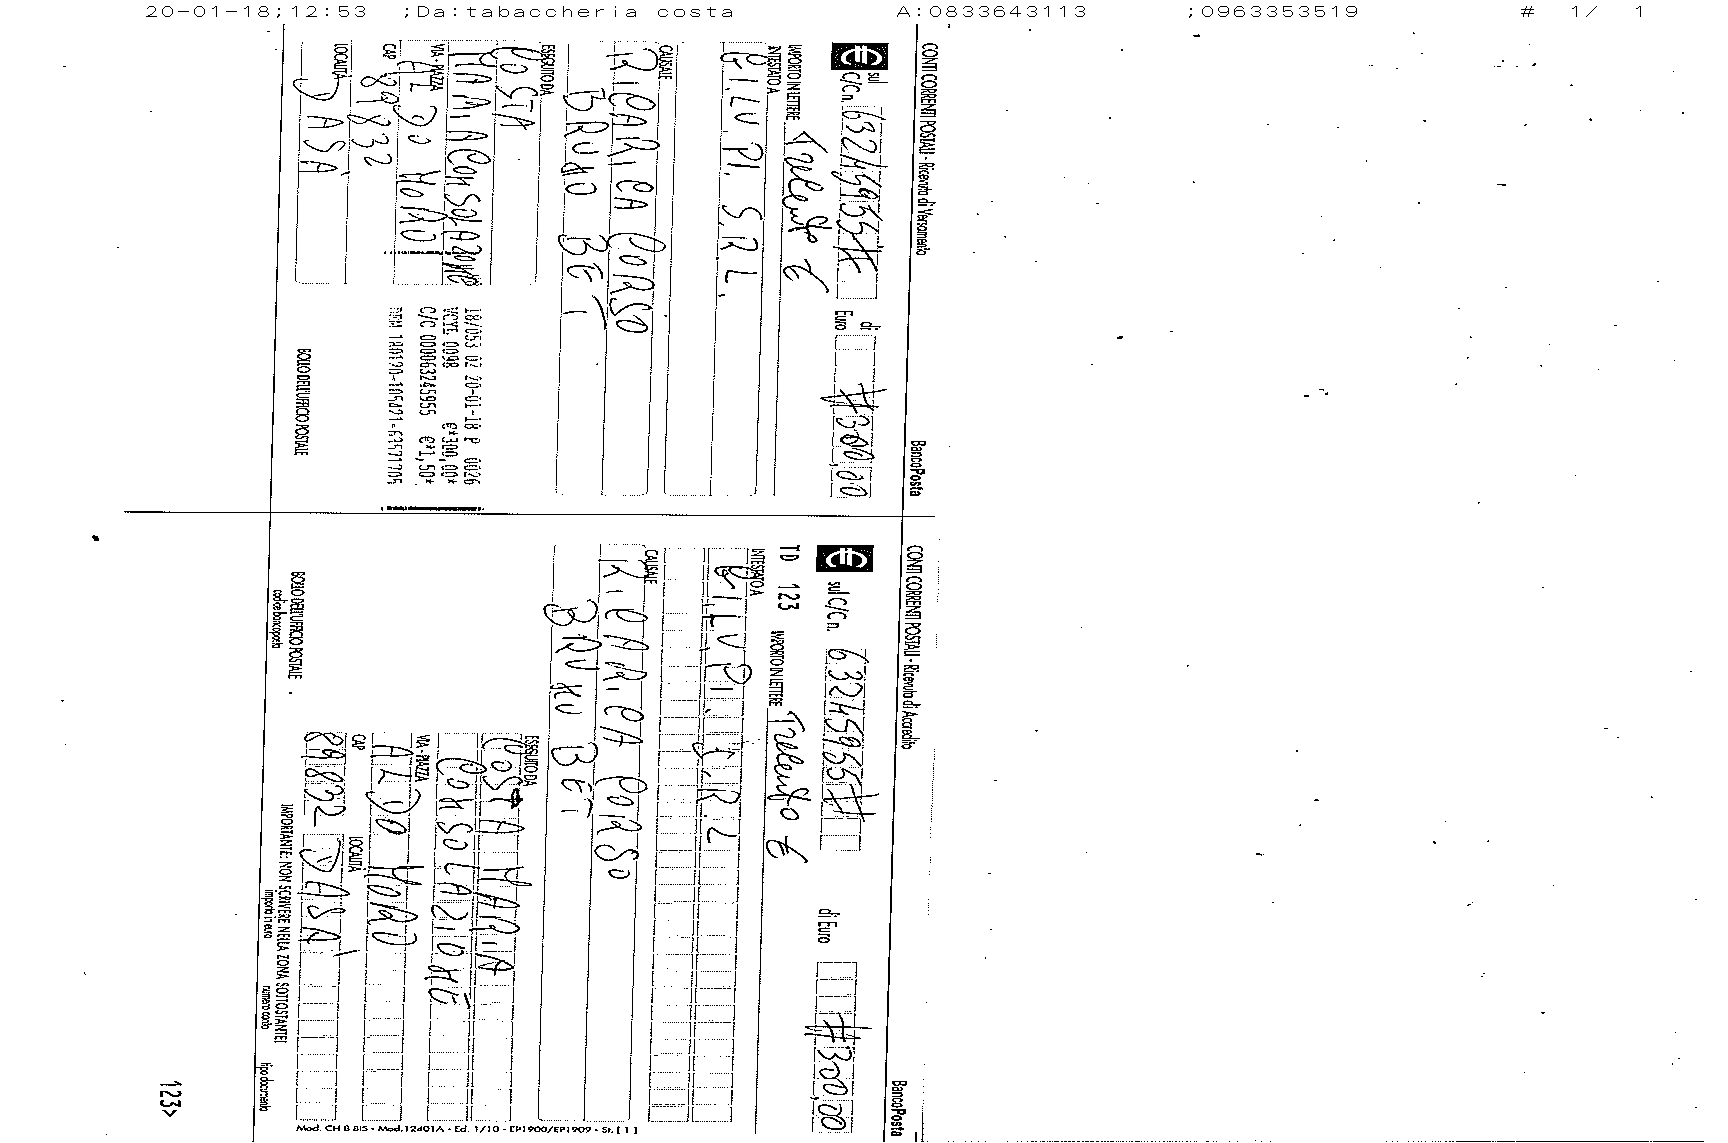 20-01-18;12:53 ;Da:tabaccheria costa A:0833643113 ;0963353519 # 1/ 1
CONTI CORRENTI POSTALI - Ricevuta di Versamento BancoPosta
sul C/C n. 63245955# di Euro #300,00
IMPORTO IN LETTERE Trecento €
INTESTATO A
BI.LU.PI. S.R.L.
CAUSALE
RICARICA CORSO
BRUNO BET
ESEGUITO DA
COSTA
MARIA CONSOLAZIONE
VIA - PIAZZA
ALDO MORO
CAP 89832
LOCALITÀ
DASA'
18/053 02 20-01-18 P 0026
VCYL 0098 €*300,00*
C/C 000063245955 €*1,50*
BOLLO DELL'UFFICIO POSTALE
CONTI CORRENTI POSTALI - Ricevuta di Accredito BancoPosta
sul C/C n. 63245955# di Euro #300,00
TD 123 IMPORTO IN LETTERE Trecento €
INTESTATO A
BI.LU.PI. S.R.L
CAUSALE
RICARICA CORSO
BRUNO BET
ESEGUITO DA
COSTA MARIA
CONSOLAZIONE
VIA - PIAZZA
ALDO MORO
CAP LOCALITÀ
89832 DASA'
BOLLO DELL'UFFICIO POSTALE
codice bancoposta
IMPORTANTE: NON SCRIVERE NELLA ZONA SOTTOSTANTE!
importo in euro numero conto tipo documento
123>
Mod. CH 8 BIS - Mod.12401A - Ed. 1/10 - EP1900/EP1909 - St. [1]